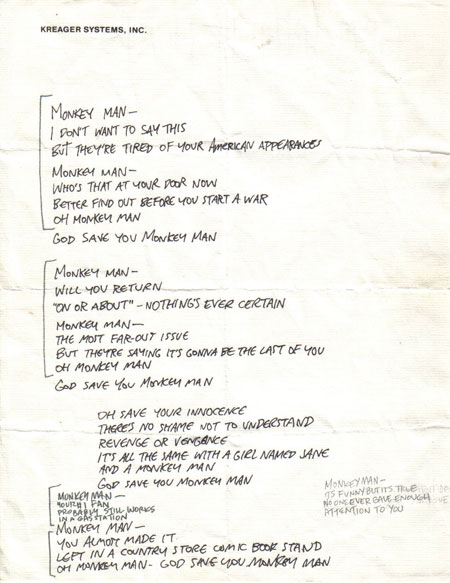 KREAGER SYSTEMS, INC.
MONKEY MAN—
I DON'T WANT TO SAY THIS
BUT THEY'RE TIRED OF YOUR AMERICAN APPEARANCES
MONKEY MAN—
WHO'S THAT AT YOUR DOOR NOW
BETTER FIND OUT BEFORE YOU START A WAR
OH MONKEY MAN
GOD SAVE YOU MONKEY MAN
MONKEY MAN—
WILL YOU RETURN
"ON OR ABOUT" – NOTHING'S EVER CERTAIN
MONKEY MAN—
THE MOST FAR-OUT ISSUE
BUT THEY'RE SAYING IT'S GONNA BE THE LAST OF YOU
OH MONKEY MAN
GOD SAVE YOU MONKEY MAN
OH SAVE YOUR INNOCENCE
THERE'S NO SHAME NOT TO UNDERSTAND
REVENGE OR VENGEANCE
IT'S ALL THE SAME WITH A GIRL NAMED JANE
AND A MONKEY MAN
GOD SAVE YOU MONKEY MAN
MONKEY MAN—
YOUR #1 FAN
PROBABLY STILL WORKS
IN A GAS STATION
MONKEY MAN—
IT'S FUNNY BUT IT'S TRUE
NO ONE EVER GAVE ENOUGH
ATTENTION TO YOU
MONKEY MAN—
YOU ALMOST MADE IT
LEFT IN A COUNTRY STORE COMIC BOOK STAND
OH MONKEY MAN – GOD SAVE YOU MONKEY MAN